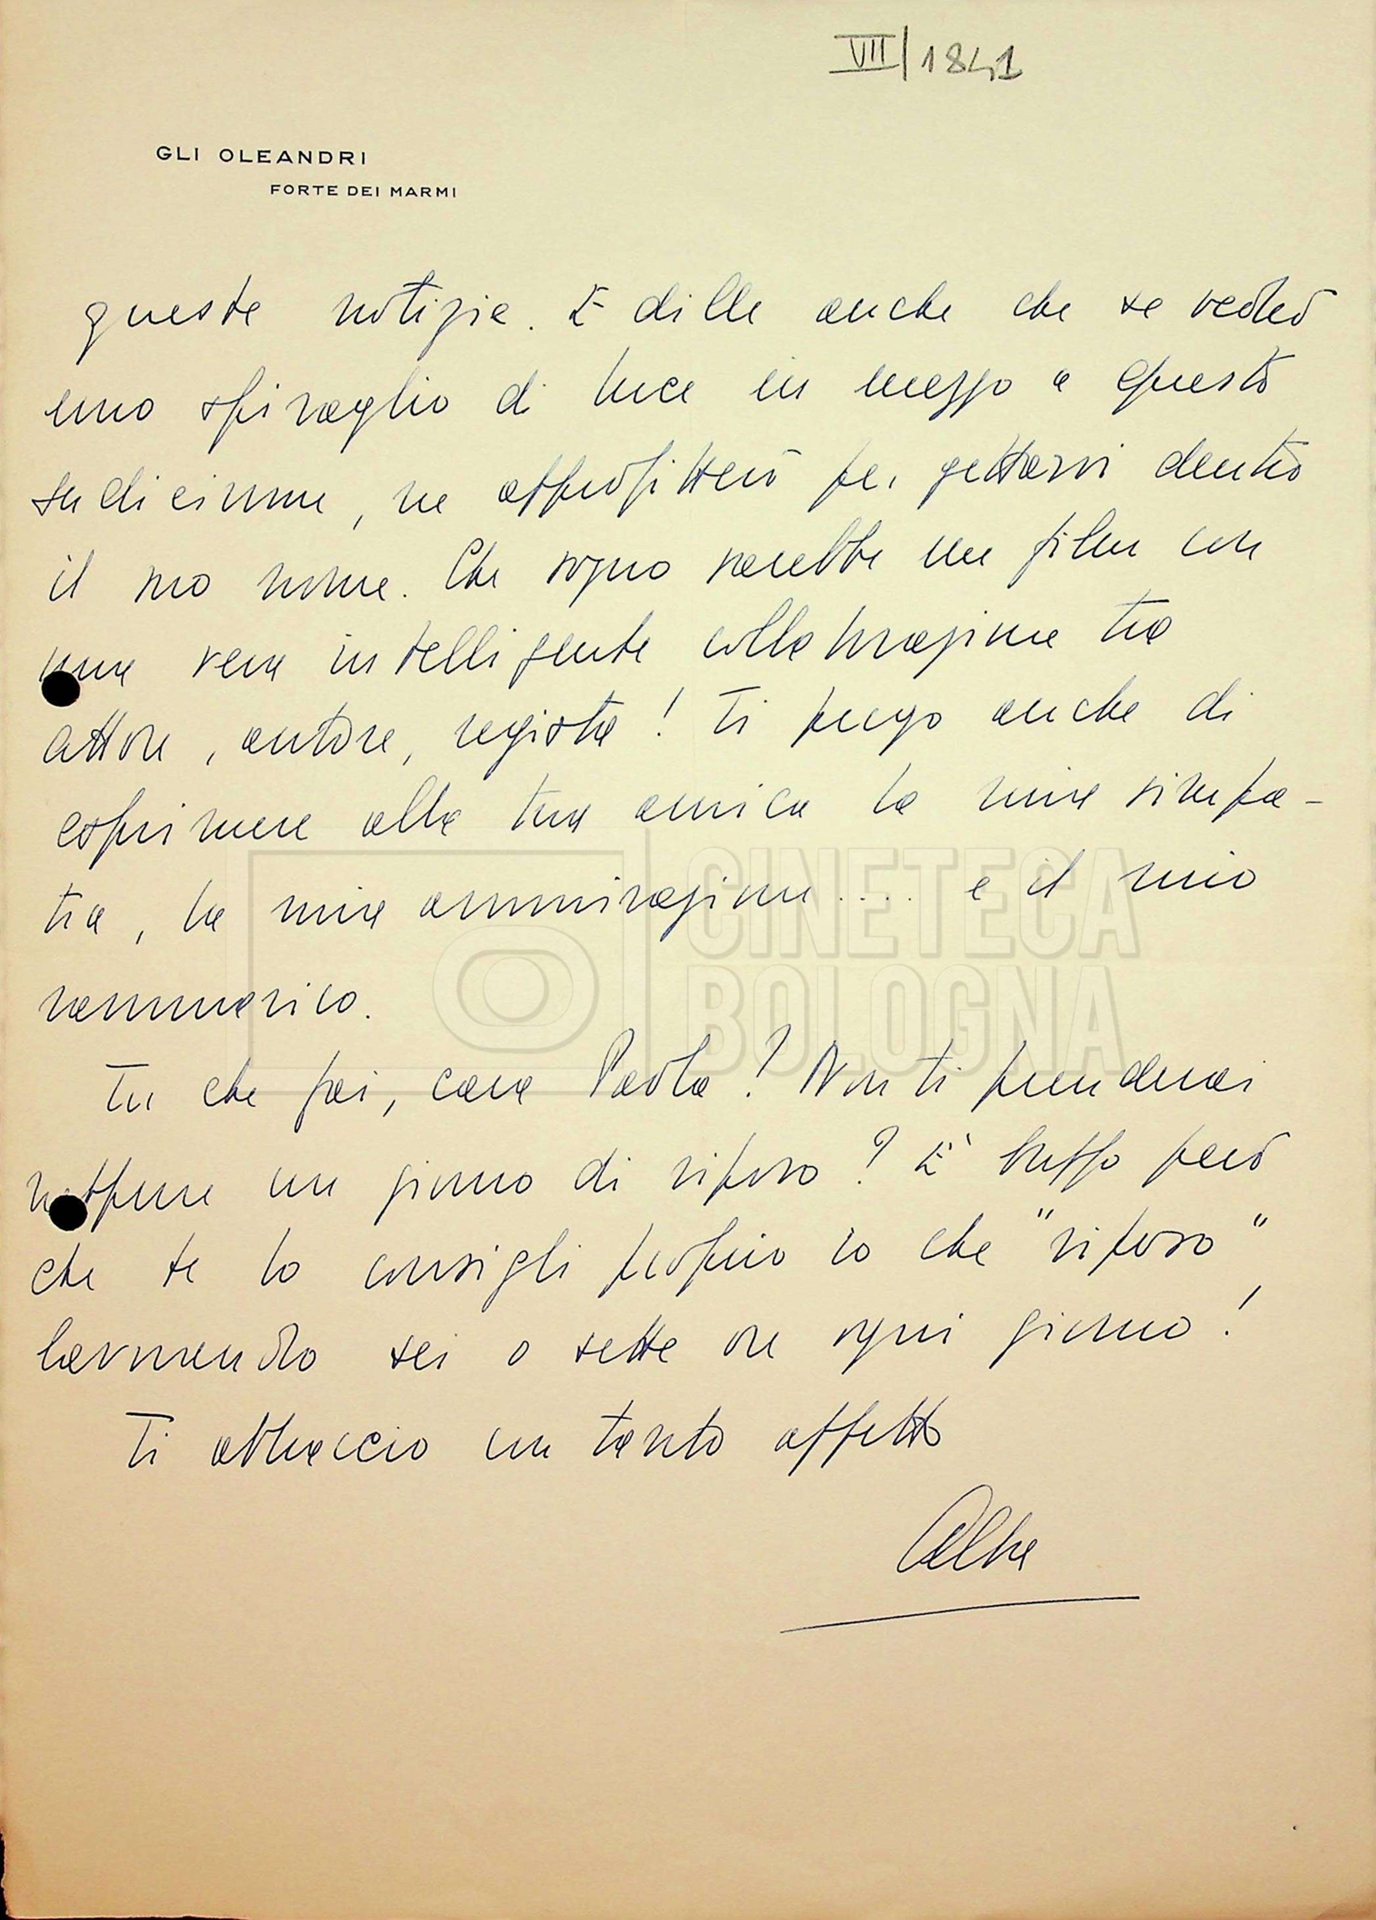 VII/1841
GLI OLEANDRI
FORTE DEI MARMI
queste notizie. E dille anche che se vedrò
uno spiraglio di luce in mezzo a questo
sudiciume, ne approfitterò per gettarvi dentro
il suo nome. Che sogno sarebbe un film con
una vera intelligente collaborazione tra
attore, autore, regista! Ti prego anche di
esprimere alla tua amica la mia simpa-
tia, la mia ammirazione.... e il mio
rammarico.
Tu che fai, cara Paola? Non ti prenderai
neppure un giorno di riposo? E' buffo però
che te lo consigli proprio io che "riposo"
lavorando sei o sette ore ogni giorno!
Ti abbraccio con tanto affetto
Alba
CINETECA
BOLOGNA